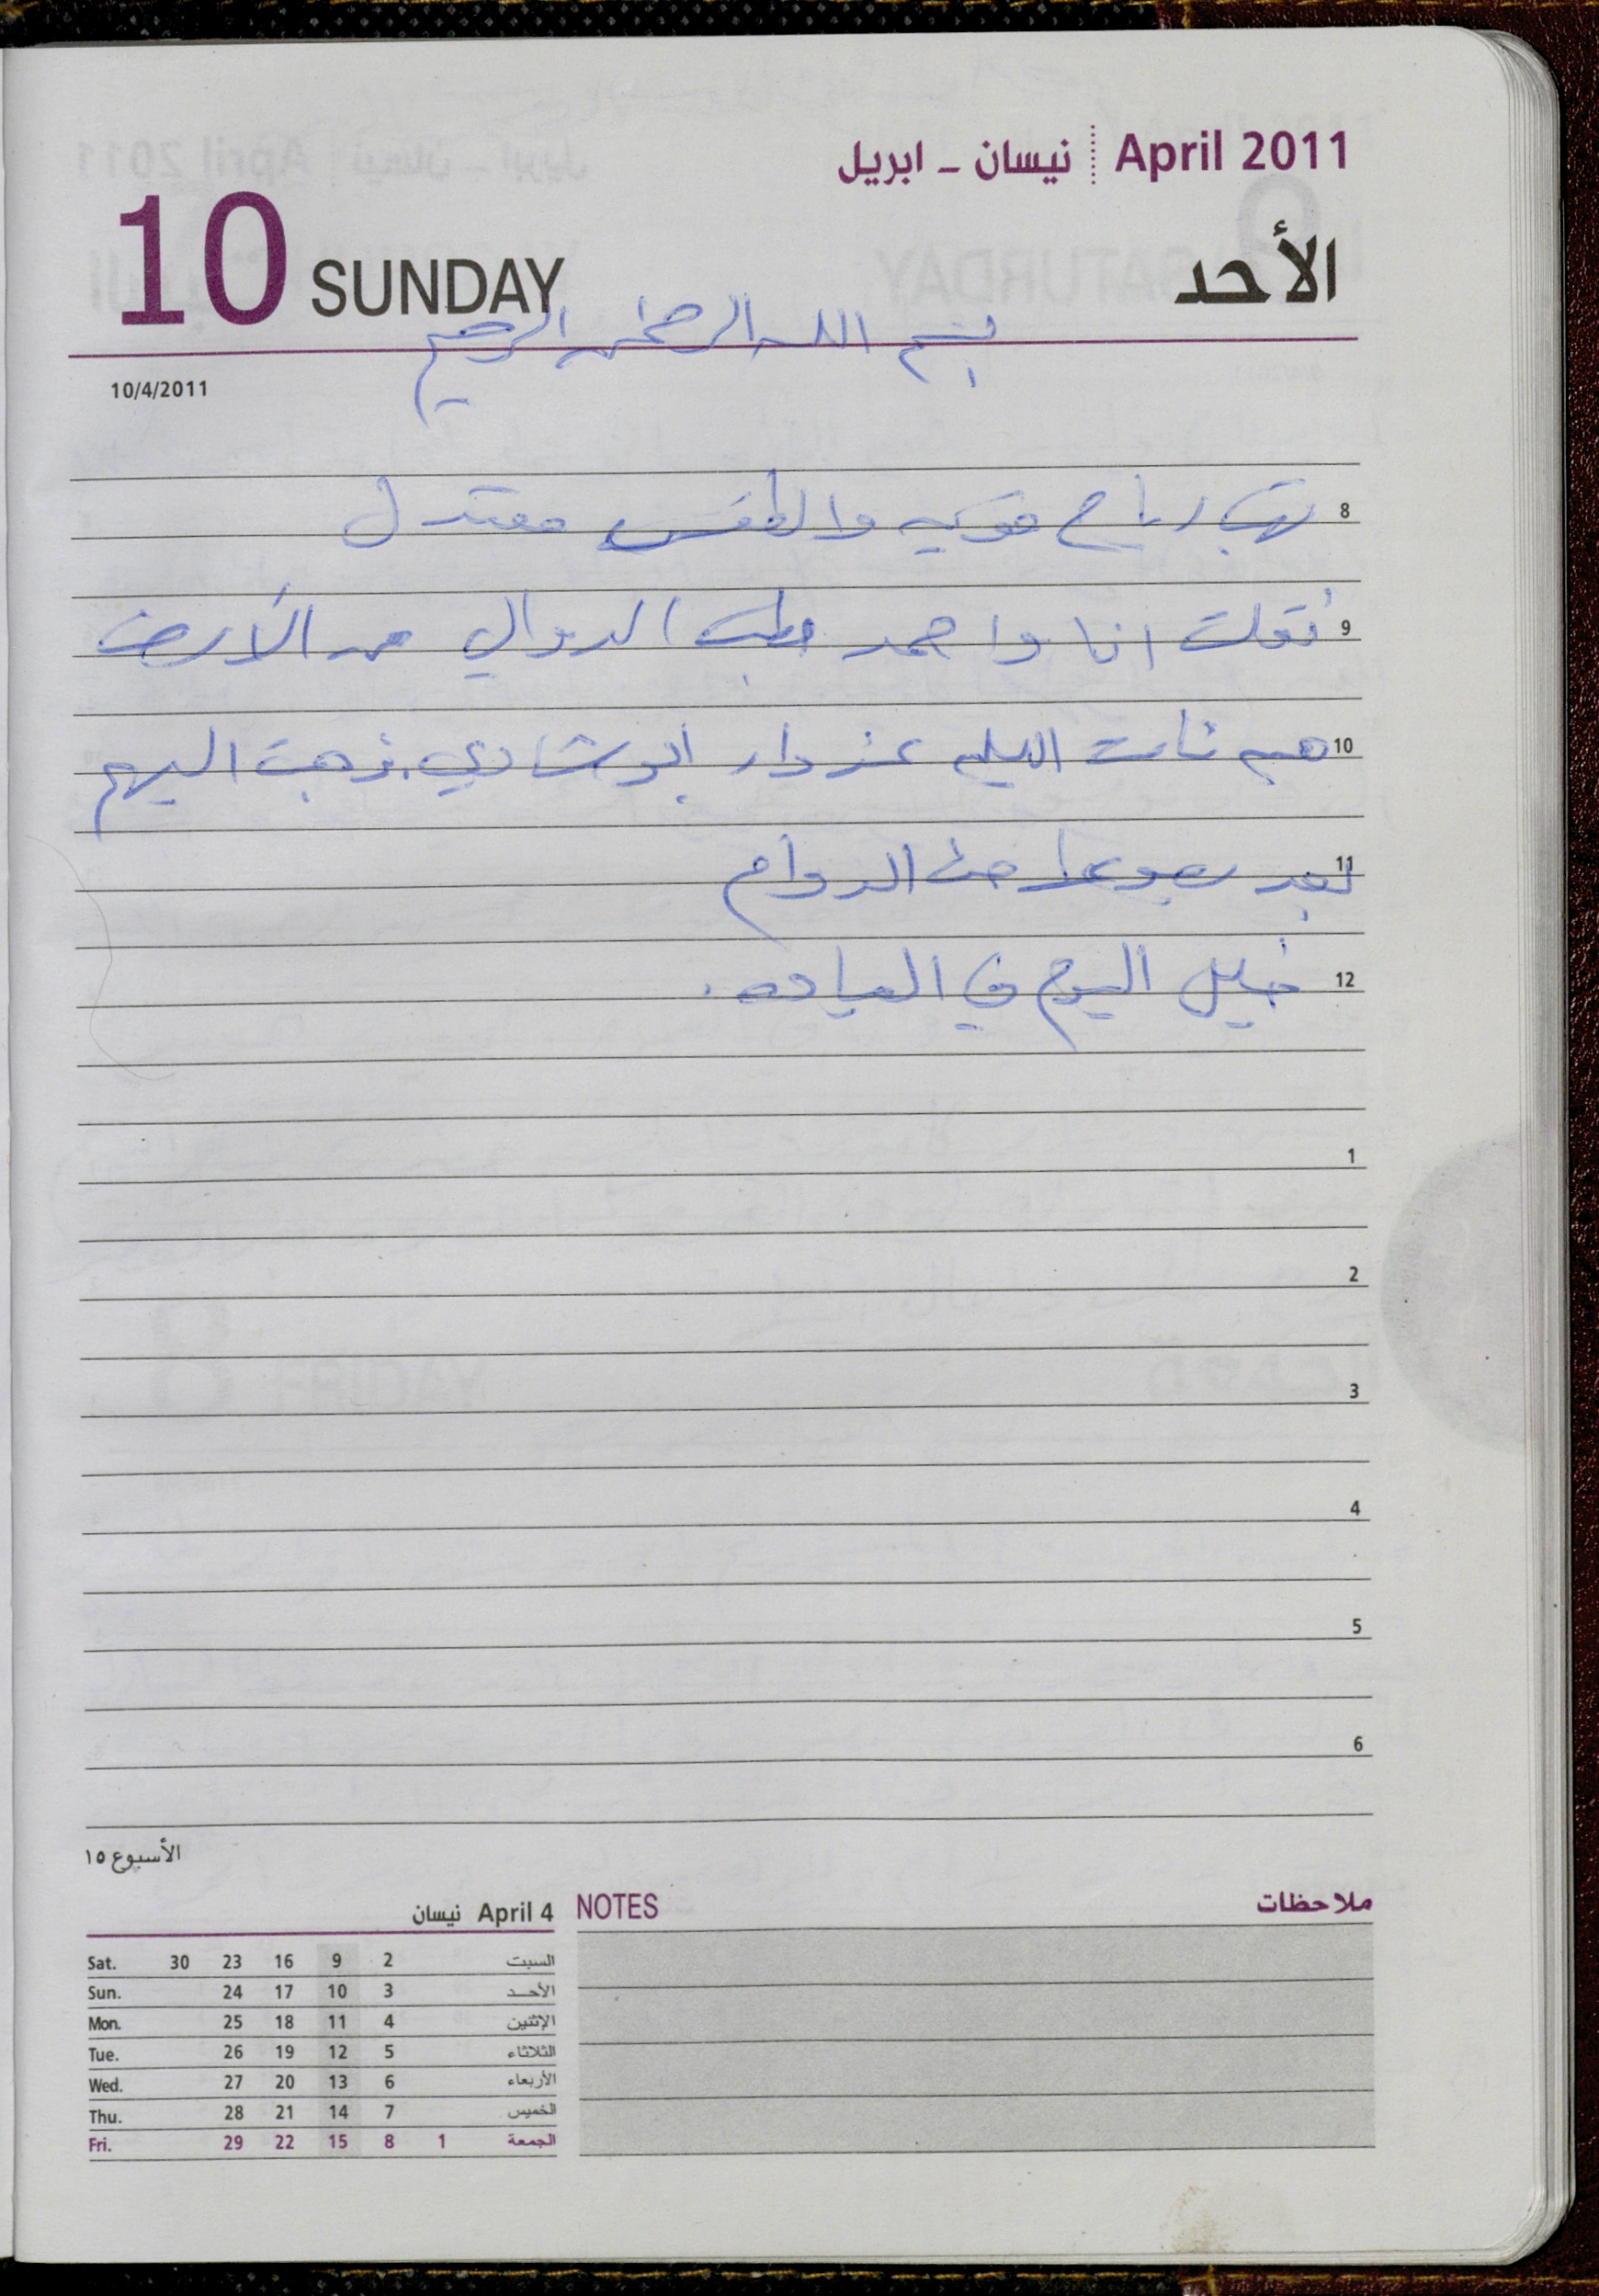 نيسان - ابريل April 2011
10 SUNDAY الأحد
بسم الله الرحمن الرحيم
10/4/2011
8 تهب رياح قويه والطقس معتدل
9 نقلت انا واحمد حطب الدوالي من الأرض
10 هبه نامت الليله عند دار ابو شادي. ذهبت اليهم
11 بعد رجوعها من الدوام
12 خليل اليوم في العياده.
1
2
3
4
5
6
الأسبوع ١٥
نيسان April 4
Sat. 30 23 16 9 2 السبت
Sun. 24 17 10 3 الأحد
Mon. 25 18 11 4 الإثنين
Tue. 26 19 12 5 الثلاثاء
Wed. 27 20 13 6 الأربعاء
Thu. 28 21 14 7 الخميس
Fri. 29 22 15 8 1 الجمعة
NOTES ملاحظات